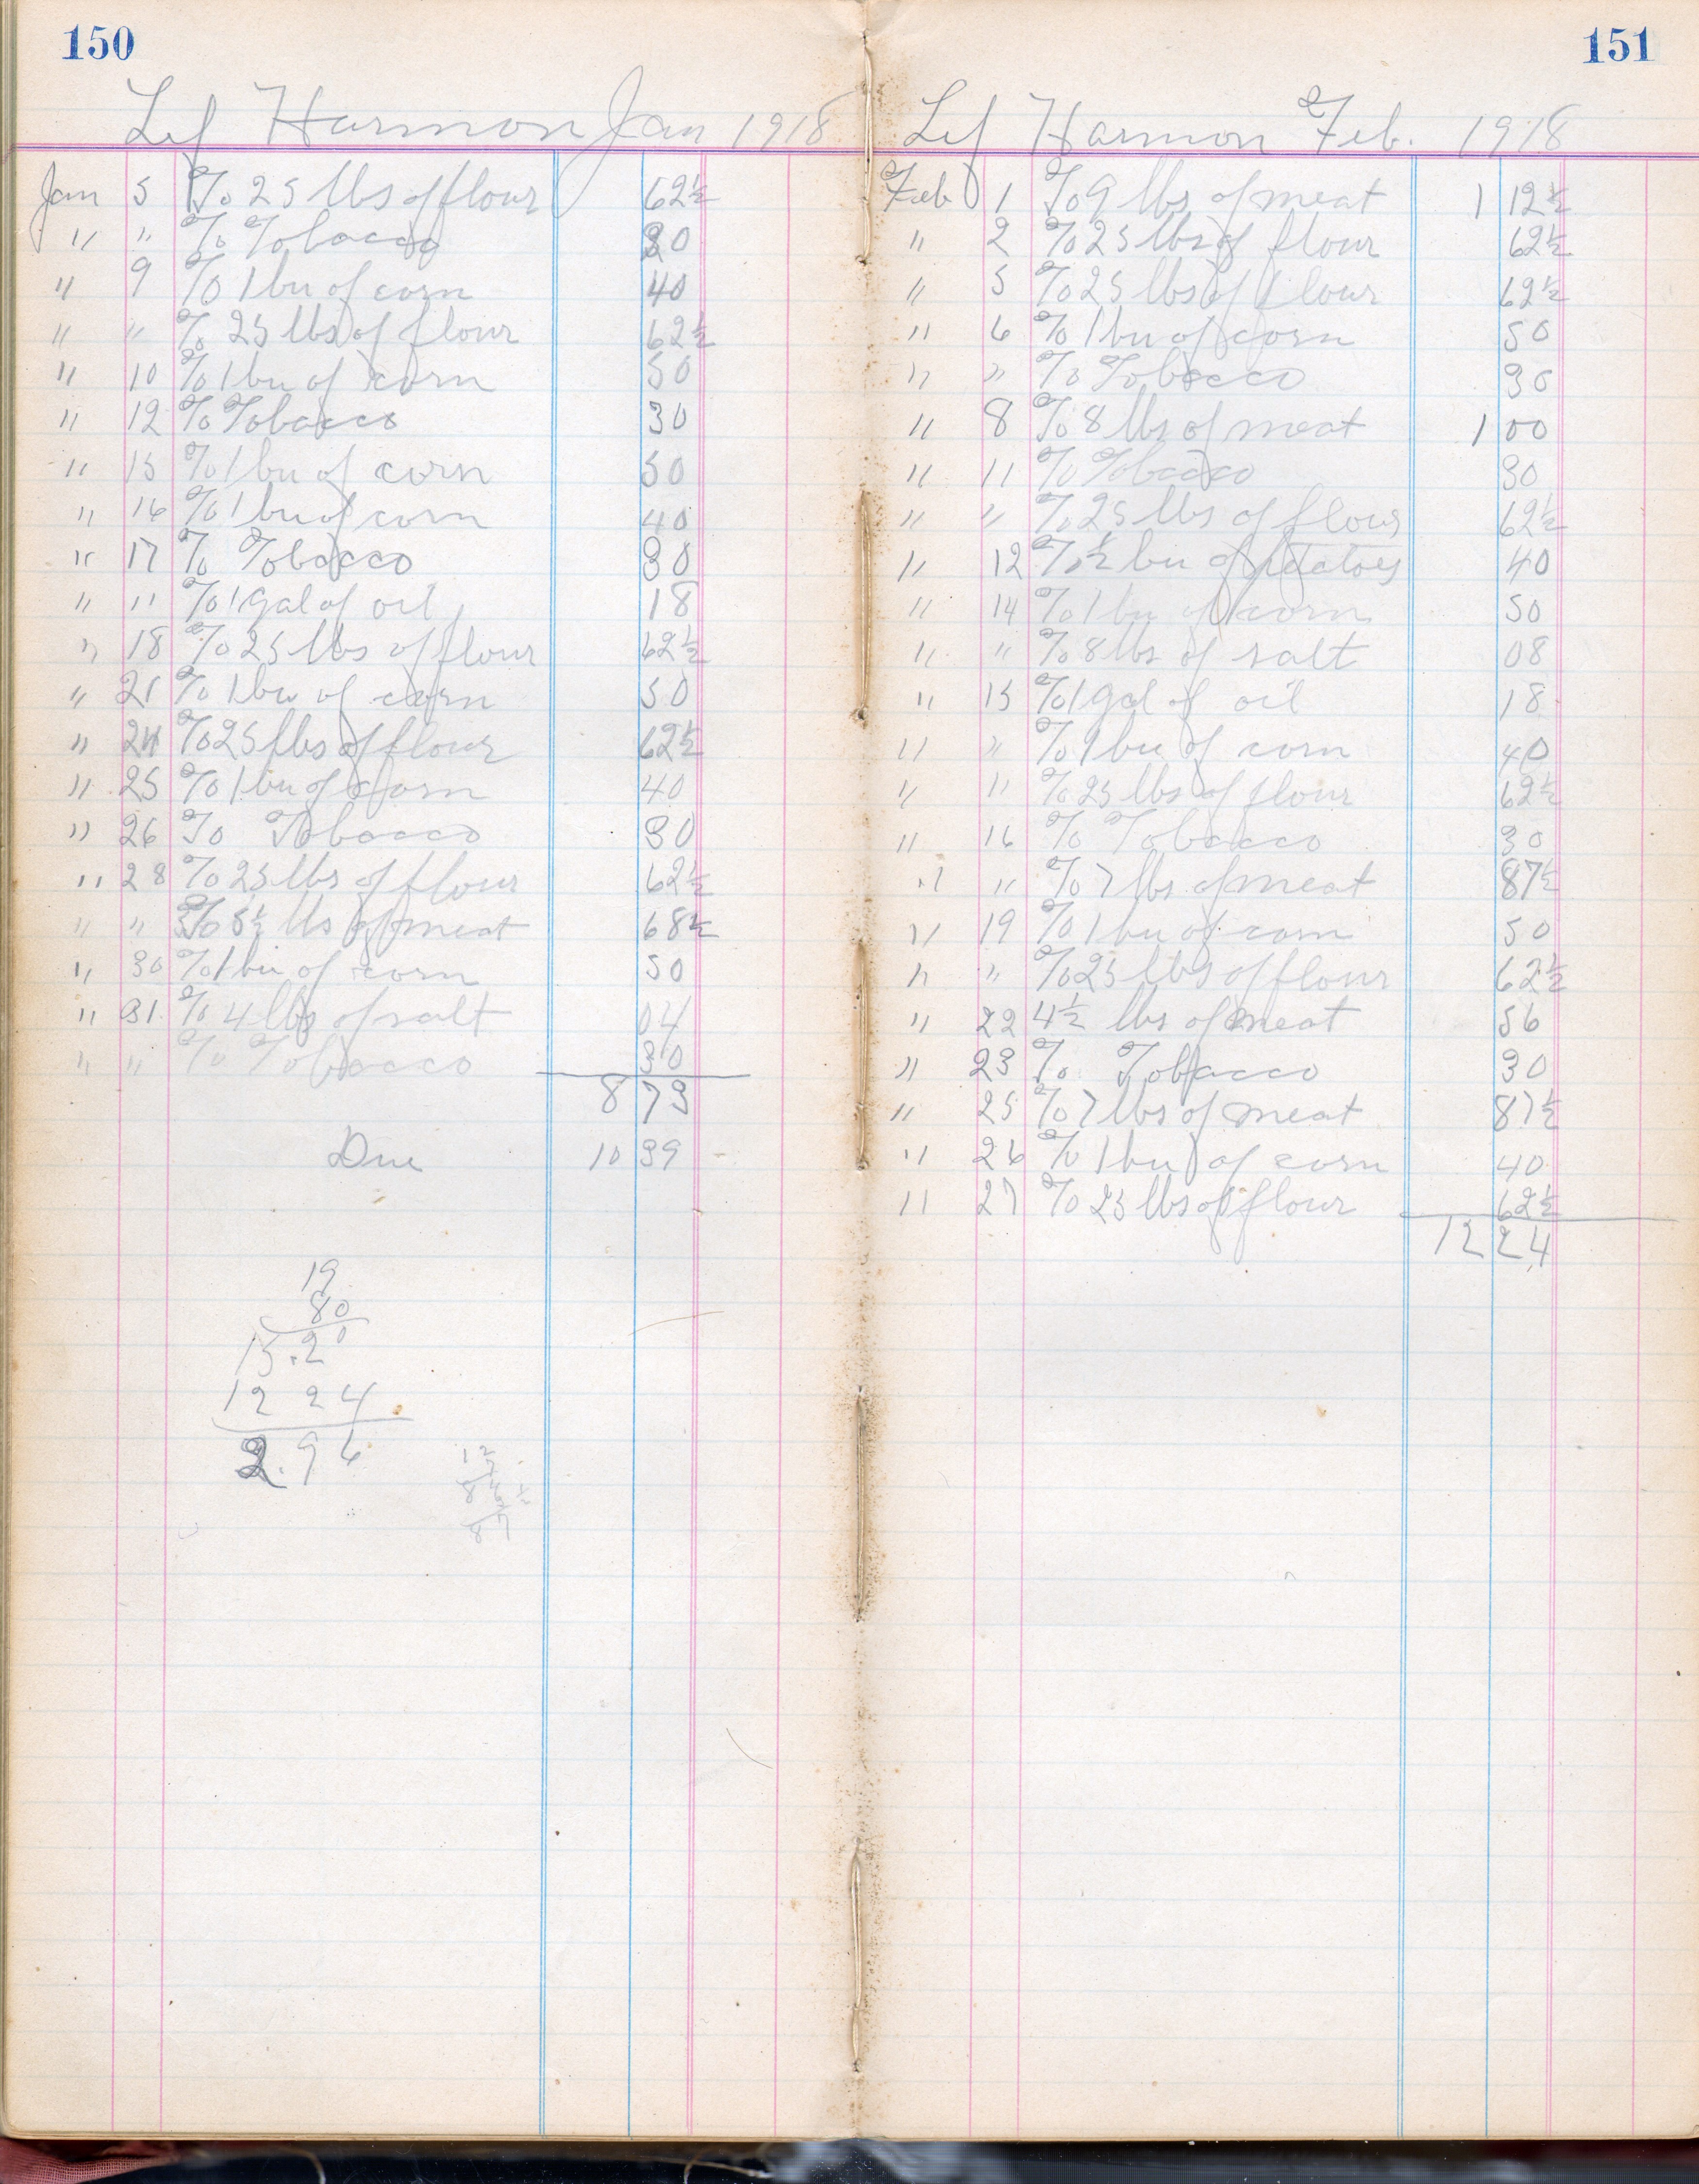 150
Lef Harmon Jan 1918
Jan 5 To 25 lbs of flour 62½
" " To Tobacco 30
" 9 To 1 bu of corn 40
" " To 25 lbs of flour 62½
" 10 To 1 bu of corn 50
" 12 To Tobacco 30
" 15 To 1 bu of corn 50
" 16 To 1 bu of corn 40
" 17 To Tobacco 30
" " To 1 gal of oil 18
" 18 To 25 lbs of flour 62½
" 21 To 1 bu of corn 50
" 24 To 25 lbs of flour 62½
" 25 To 1 bu of corn 40
" 26 To Tobacco 30
" 28 To 25 lbs of flour 62½
" " To 5½ lbs of meat 68½
" 30 To 1 bu of corn 50
" 31 To 4 lbs of salt 04
" " To Tobacco 30
8 73
Due 10 39
19
80
15.20
12 24
2.96
12
8
87
151
Lef Harmon Feb. 1918
Feb 1 To 9 lbs of meat 1 12½
" 2 To 25 lbs of flour 62½
" 5 To 25 lbs of flour 62½
" 6 To 1 bu of corn 50
" " To Tobacco 30
" 8 To 8 lbs of meat 1 00
" 11 To Tobacco 30
" " To 25 lbs of flour 62½
" 12 To ½ bu of potatoes 40
" 14 To 1 bu of corn 50
" " To 8 lbs of salt 08
" 15 To 1 gal of oil 18
" " To 1 bu of corn 40
" " To 25 lbs of flour 62½
" 16 To Tobacco 30
" " To 7 lbs of meat 87½
" 19 To 1 bu of corn 50
" " To 25 lbs of flour 62½
" 22 4½ lbs of meat 56
" 23 To Tobacco 30
" 25 To 7 lbs of meat 87½
" 26 To 1 bu of corn 40
" 27 To 25 lbs of flour 62½
12 24